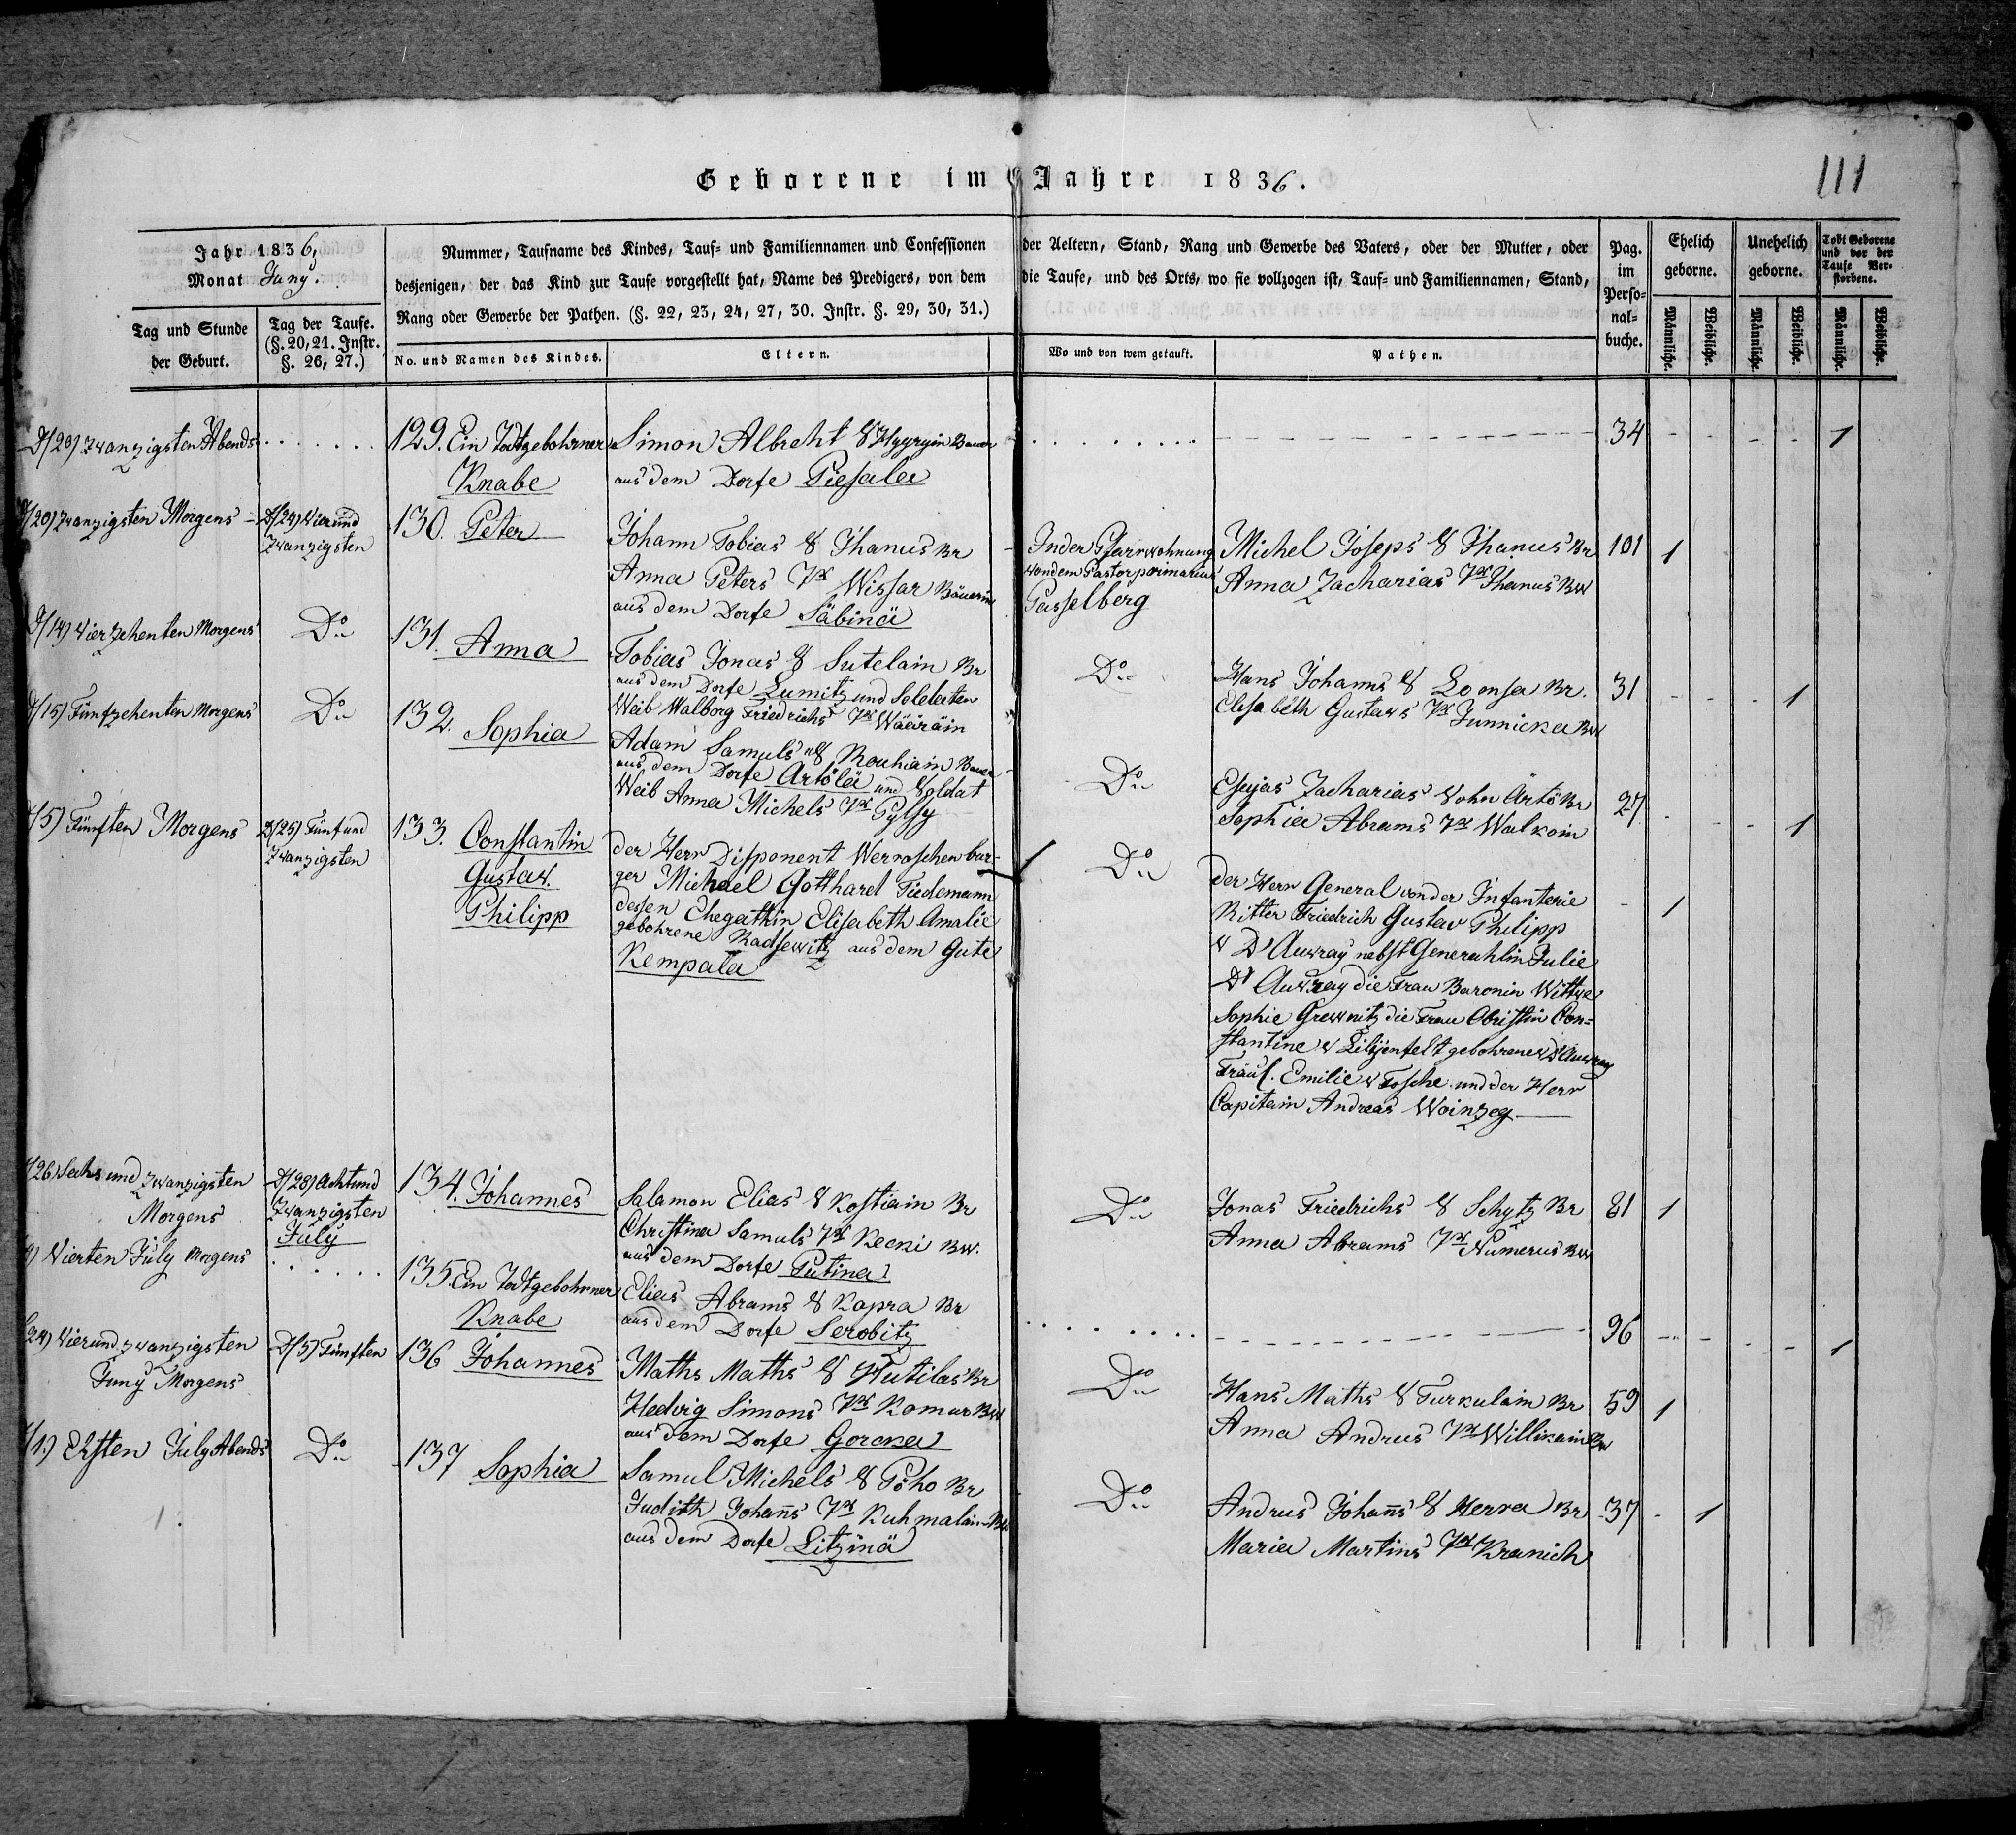 Geborene im Jahre 1836.
111
Jahr 1836,
Monat Juny.
Tag und Stunde
der Geburt.
Tag der Taufe.
(§. 20, 21. Instr.
§. 26, 27.)
Nummer, Taufname des Kindes, Tauf- und Familiennamen und Confessionen der Aeltern, Stand, Rang und Gewerbe des Vaters, oder der Mutter, oder
desjenigen, der das Kind zur Taufe vorgestellt hat, Name des Predigers, von dem die Taufe, und des Orts, wo sie vollzogen ist, Tauf- und Familiennamen, Stand,
Rang oder Gewerbe der Pathen. (§. 22, 23, 24, 27, 30. Instr. §. 29, 30, 31.)
No. und Namen des Kindes.
Eltern.
Wo und von wem getauft.
Pathen.
Pag.
im
Perso-
nal-
buche.
Ehelich
geborne.
Unehelich
geborne.
Todt Geborene
und vor der
Taufe Ver-
storbene.
Männliche.
Weibliche.
Männliche.
Weibliche.
Männliche.
Weibliche.
D/20) zwanzigsten Abends
129. Ein Todtgebohrner
Knabe
Simon Albrecht S Hyyryin Bauer
aus dem Dorfe Piesalä
34
1
D/20) zwanzigsten Morgens
D/24) Vierund
zwanzigsten
130. Peter
Johann Tobias S Ihanus Br
Anna Peters Tr Wissar Bäuerin
aus dem Dorfe Säbinä
In der Pfarrwohnung
von dem Pastor primarius
Passelberg
Michel Joseps S Ihanus Br
Anna Zacharias Tr Ihanus BW
101
1
D/14) Vierzehenten Morgens
Do
131. Anna
Tobias Jonas S Sutelain Br
aus dem Dorfe Lumitz und Soldaten
Weib Walborg Friedrichs Tr Wäiräin
Do
Hans Johanns S Loonsa Br.
Elisabeth Gustavs Tr Junnicka BW
31
1
D/15) Fünfzehenten Morgens
Do
132. Sophia
Adam Samuls S Rouhiain Bauer
aus dem Dorfe Artölä und Soldat
Weib Anna Michels Tr Pylsy
Do
Esajas Zacharias Sohn Artö Br
Sophia Abrams Tr Walkoin
27
1
D/5) Fünften Morgens
D/25) Fünfund
zwanzigsten
133. Constantin
Gustav.
Philipp
der Herr Disponent Werroschenbür-
ger Michael Gotthard Tiedemann
dessen Ehegattin Elisabeth Amalie
gebohrene Radsewitz aus dem Gute
Kempala
Do
der Herr General von der Infanterie
Ritter Friedrich Gustav Philipp
v D'Auvray nebst Generahlin Julie
D'Auvray die Frau Baronin Wittwe
Sophie Grewnitz die Frau Obristin Con-
stantine v Lilijenfelt gebohrene v D'Auvray
Fräul. Emilie v Tosche und der Herr
Capitain Andreas Woinzeg
1
/26) Sechs und zwanzigsten
Morgens
D/28) Achtund
zwanzigsten
July
134. Johannes
Salamon Elias S Kostiain Br
Christina Samuls Tr Kecki BW.
aus dem Dorfe Putina
Do
Jonas Friedrichs S Schytz Br
Anna Abrams Tr Numerus BW
81
1
4) Vierten July Morgens
135 Ein Todtgebohrner
Knabe
Elias Abrams S Kapra Br
aus dem Dorfe Serobitz
96
1
/24) Vierund zwanzigsten
Juny Morgens
D/5) Fünften
136 Johannes
Maths Maths S Hutilas Br
Hedvig Simons Tr Komar BW
aus dem Dorfe Gorcka
Do
Hans Maths S Turkulain Br
Anna Andrus Tr Willikain BW
59
1
/1.) Ersten July Abends
Do
137 Sophia
Samul Michels S Pöho Br
Judith Johans Tr Kuhmalain BW
aus dem Dorfe Litzinä
Do
Andrus Johans S Herra Br
Maria Martins Tr Kranich
37
1